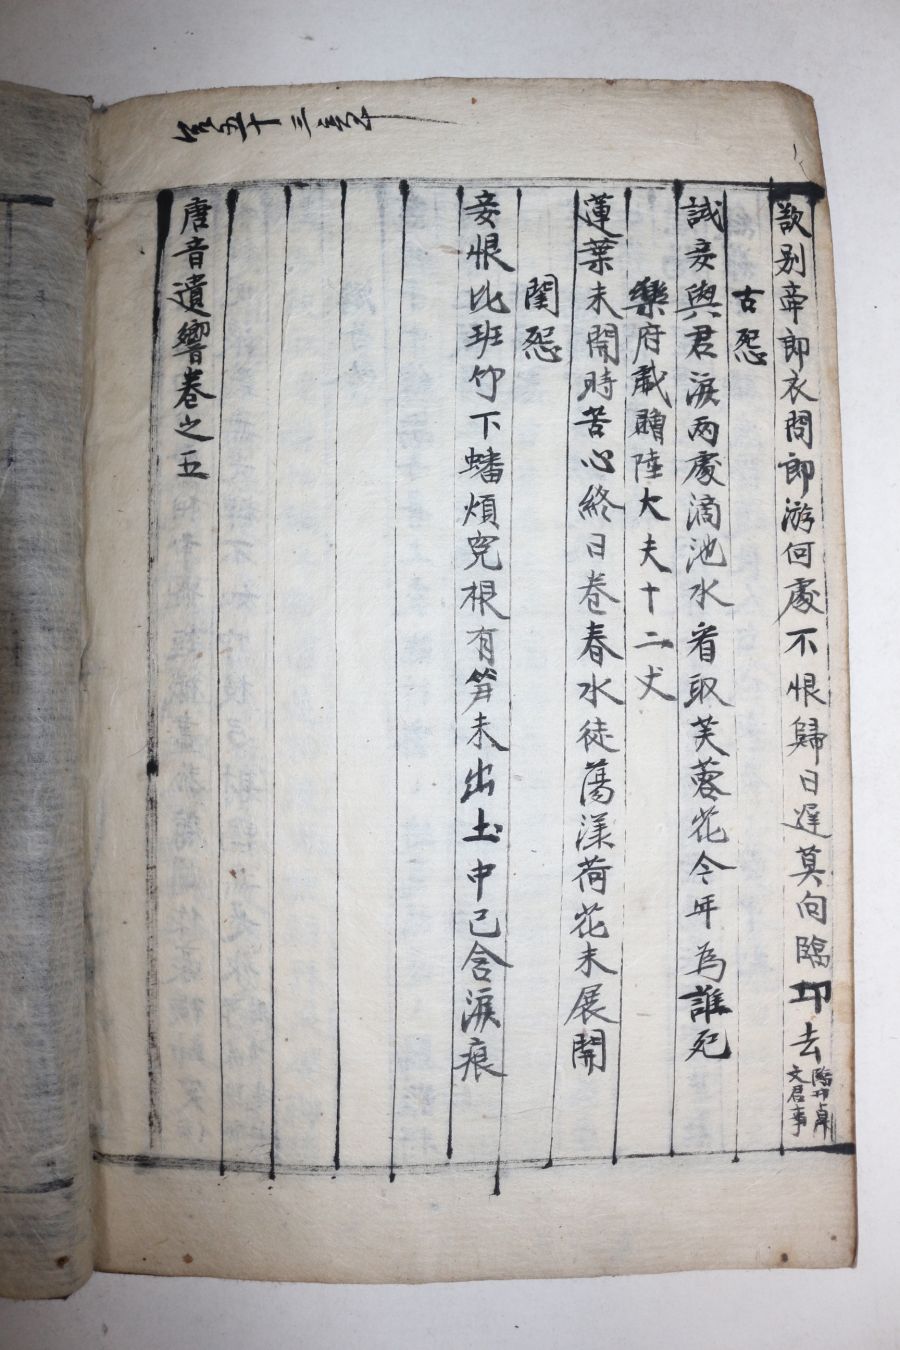 欲别牽郎衣問郎游何處不恨歸日遲莫向臨邛去
臨邛卓
文君事
古怨
試妾與君淚兩處滴池水看取芙蓉花今年為誰死
樂府戱贈陸大夫十二丈
蓮葉未開時苦心終日卷春水徒蕩漾荷花未展開
閨怨
妾恨比班竹下蟠煩寃根有笋未出土中已含淚痕
唐音遺響卷之五
五十三